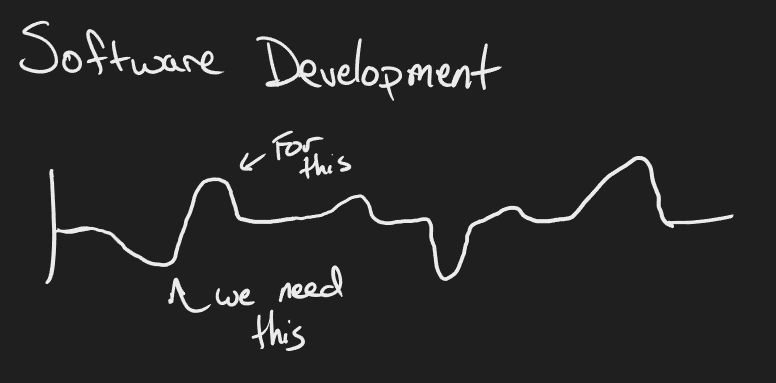 Software Development
For
this
we need
this